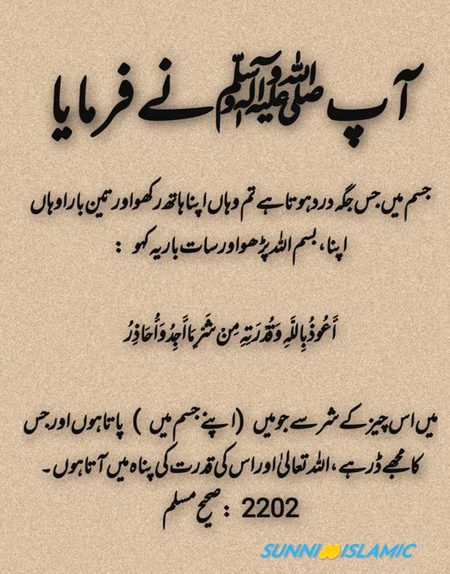 آپ ﷺ نے فرمایا
جسم میں جس جگہ درد ہوتا ہے تم وہاں اپنا ہاتھ رکھو اور تین بار اوہاں
اپنا، بسم اللہ پڑھو اور سات بار یہ کہو :
أَعُوذُ بِاللَّهِ وَقُدْرَتِهِ مِنْ شَرِّ مَا أَجِدُ وَأُحَاذِرُ
میں اس چیز کے شر سے جو میں (اپنے جسم میں ) پاتا ہوں اور جس
کا مجھے ڈر ہے، اللہ تعالیٰ اور اس کی قدرت کی پناہ میں آتا ہوں۔
صحیح مسلم : 2202
SUNNI ISLAMIC